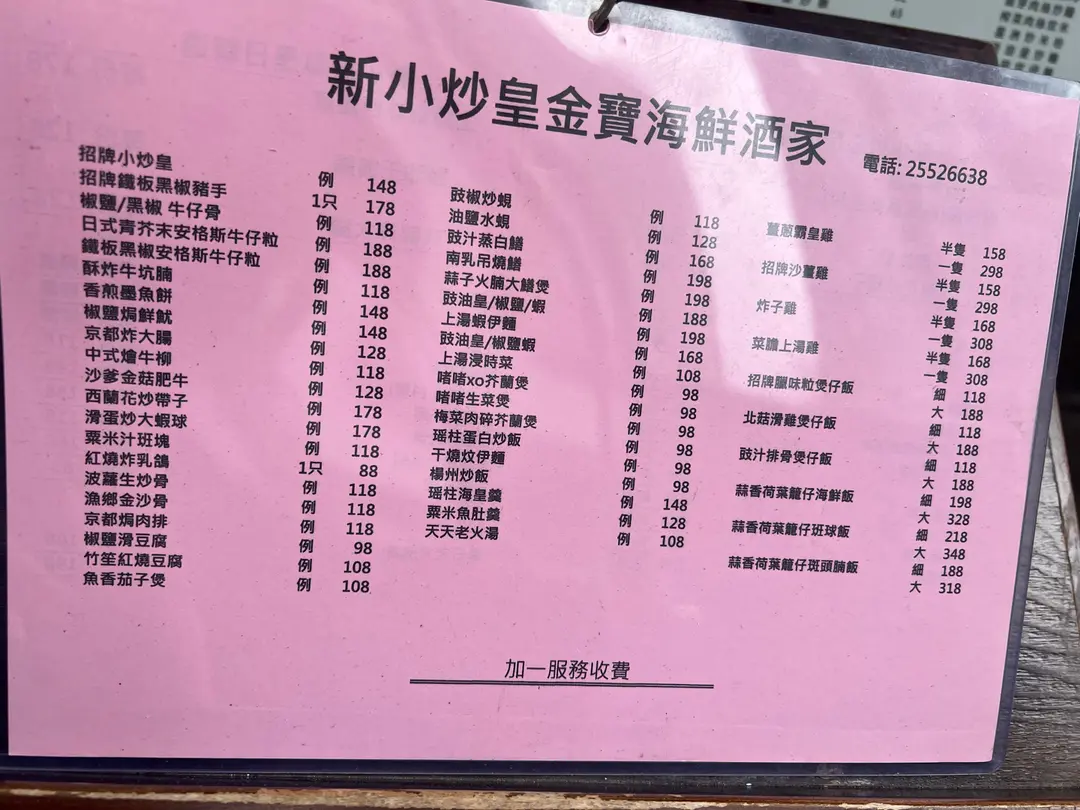 新小炒皇金寶海鮮酒家
電話: 25526638
招牌小炒皇 例 148
招牌鐵板黑椒豬手 1只 178
椒鹽/黑椒 牛仔骨 例 118
日式青芥末安格斯牛仔粒 例 188
鐵板黑椒安格斯牛仔粒 例 188
酥炸牛坑腩 例 118
香煎墨魚餅 例 148
椒鹽焗鮮魷 例 148
京都炸大腸 例 128
中式燴牛柳 例 118
沙爹金菇肥牛 例 128
西蘭花炒帶子 例 178
滑蛋炒大蝦球 例 178
粟米汁班塊 例 118
紅燒炸乳鴿 1只 88
波蘿生炒骨 例 118
漁鄉金沙骨 例 118
京都焗肉排 例 118
椒鹽滑豆腐 例 98
竹笙紅燒豆腐 例 108
魚香茄子煲 例 108
豉椒炒蜆 例 118
油鹽水蜆 例 128
豉汁蒸白鱔 例 168
南乳吊燒鱔 例 198
蒜子火腩大鱔煲 例 198
豉油皇/椒鹽/蝦 例 188
上湯蝦伊麵 例 198
豉油皇/椒鹽蝦 例 168
上湯浸時菜 例 108
啫啫xo芥蘭煲 例 98
啫啫生菜煲 例 98
梅菜肉碎芥蘭煲 例 98
瑶柱蛋白炒飯 例 98
干燒炆伊麵 例 98
楊州炒飯 例 98
瑶柱海皇羹 例 148
粟米魚肚羹 例 128
天天老火湯 例 108
薑蔥霸皇雞 半隻 158
一隻 298
招牌沙薑雞 半隻 158
一隻 298
炸子雞 半隻 168
一隻 308
菜膽上湯雞 半隻 168
一隻 308
招牌臘味粒煲仔飯 細 118
大 188
北菇滑雞煲仔飯 細 118
大 188
豉汁排骨煲仔飯 細 118
大 188
蒜香荷葉籠仔海鮮飯 細 198
大 328
蒜香荷葉籠仔班球飯 細 218
大 348
蒜香荷葉籠仔斑頭腩飯 細 188
大 318
加一服務收費